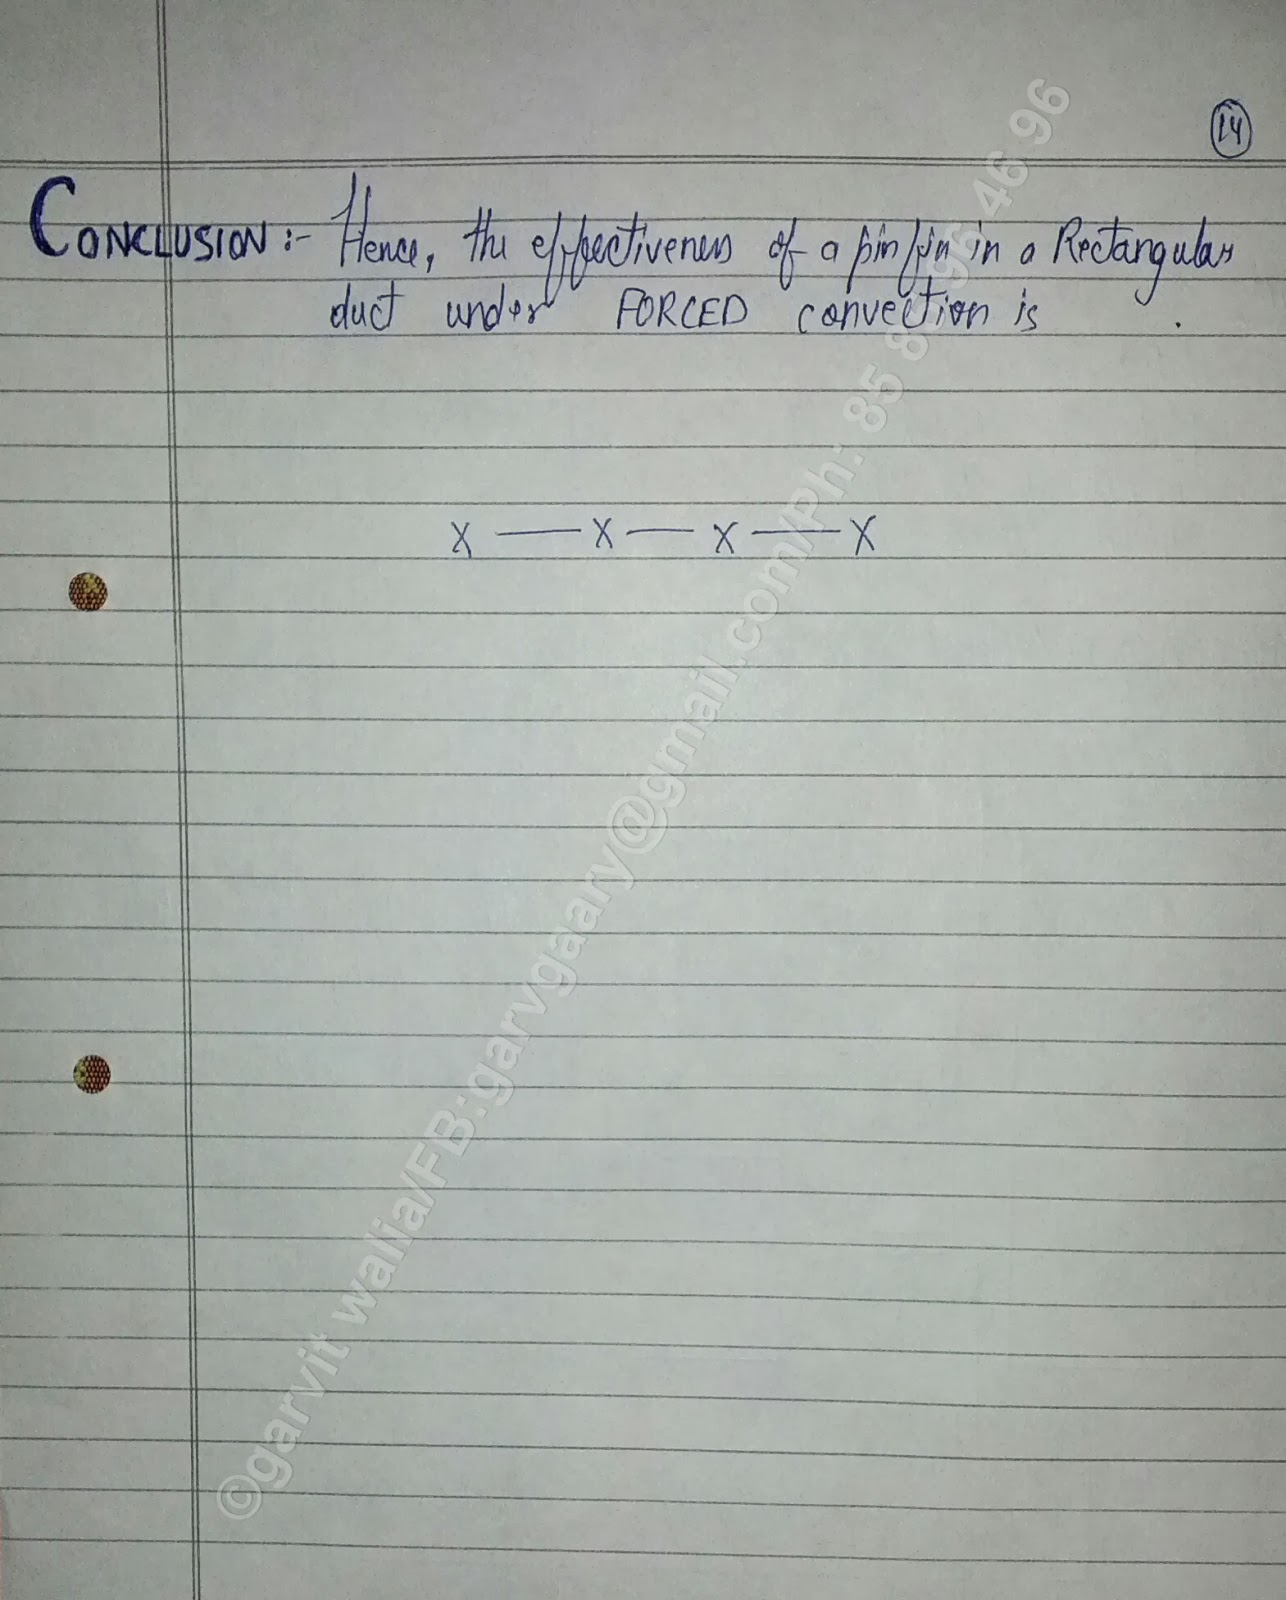 14
CONCLUSION :- Hence, the effectiveness of a pin fin in a Rectangular
duct under FORCED convection is .
X — X — X — X
©garvit walia/FB:garvgaary@gmail.com/Ph: 85 8 96 46 96